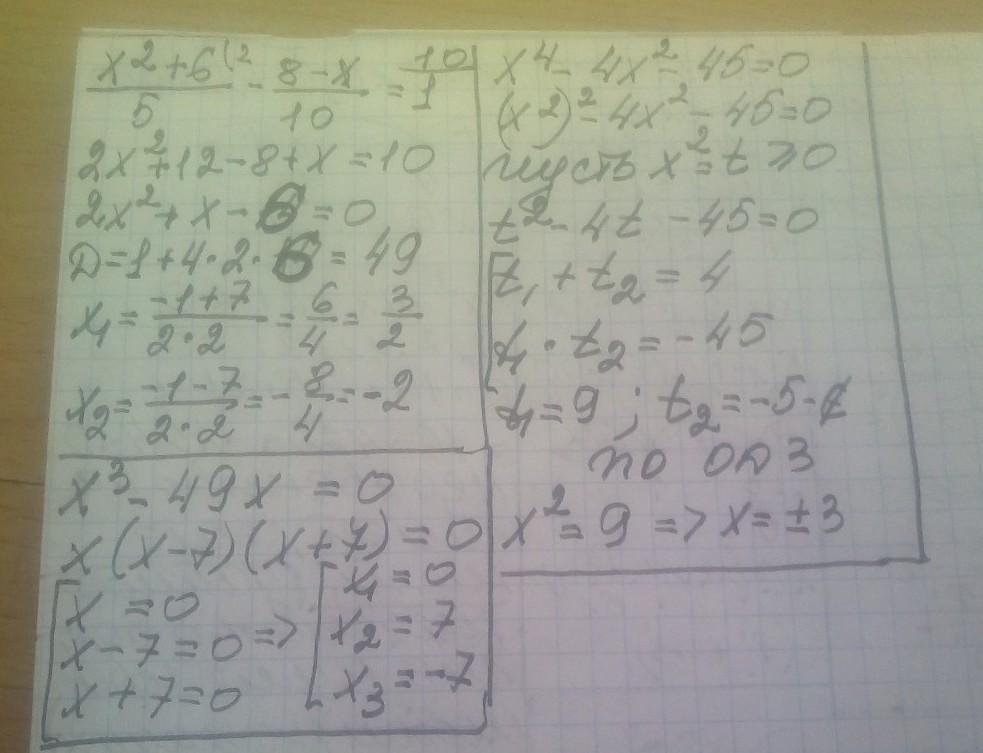 x² + 6⁽² / 5 - 8 - x / 10 = 10 / 1
2x² + 12 - 8 + x = 10
2x² + x - 6 = 0
D = 1 + 4 · 2 · 6 = 49
x₁ = -1 + 7 / 2 · 2 = 6 / 4 = 3 / 2
x₂ = -1 - 7 / 2 · 2 = - 8 / 4 = -2
x³ - 49x = 0
x (x - 7) (x + 7) = 0
[ x = 0
x - 7 = 0 =>
x + 7 = 0
[ x₁ = 0
x₂ = 7
x₃ = -7
x⁴ - 4x² - 45 = 0
(x²)² - 4x² - 45 = 0
пусть x² = t ≥ 0
t² - 4t - 45 = 0
[ t₁ + t₂ = 4
t₁ · t₂ = -45
t₁ = 9 ; t₂ = -5 - ¢
по ОДЗ
x² = 9 => x = ±3